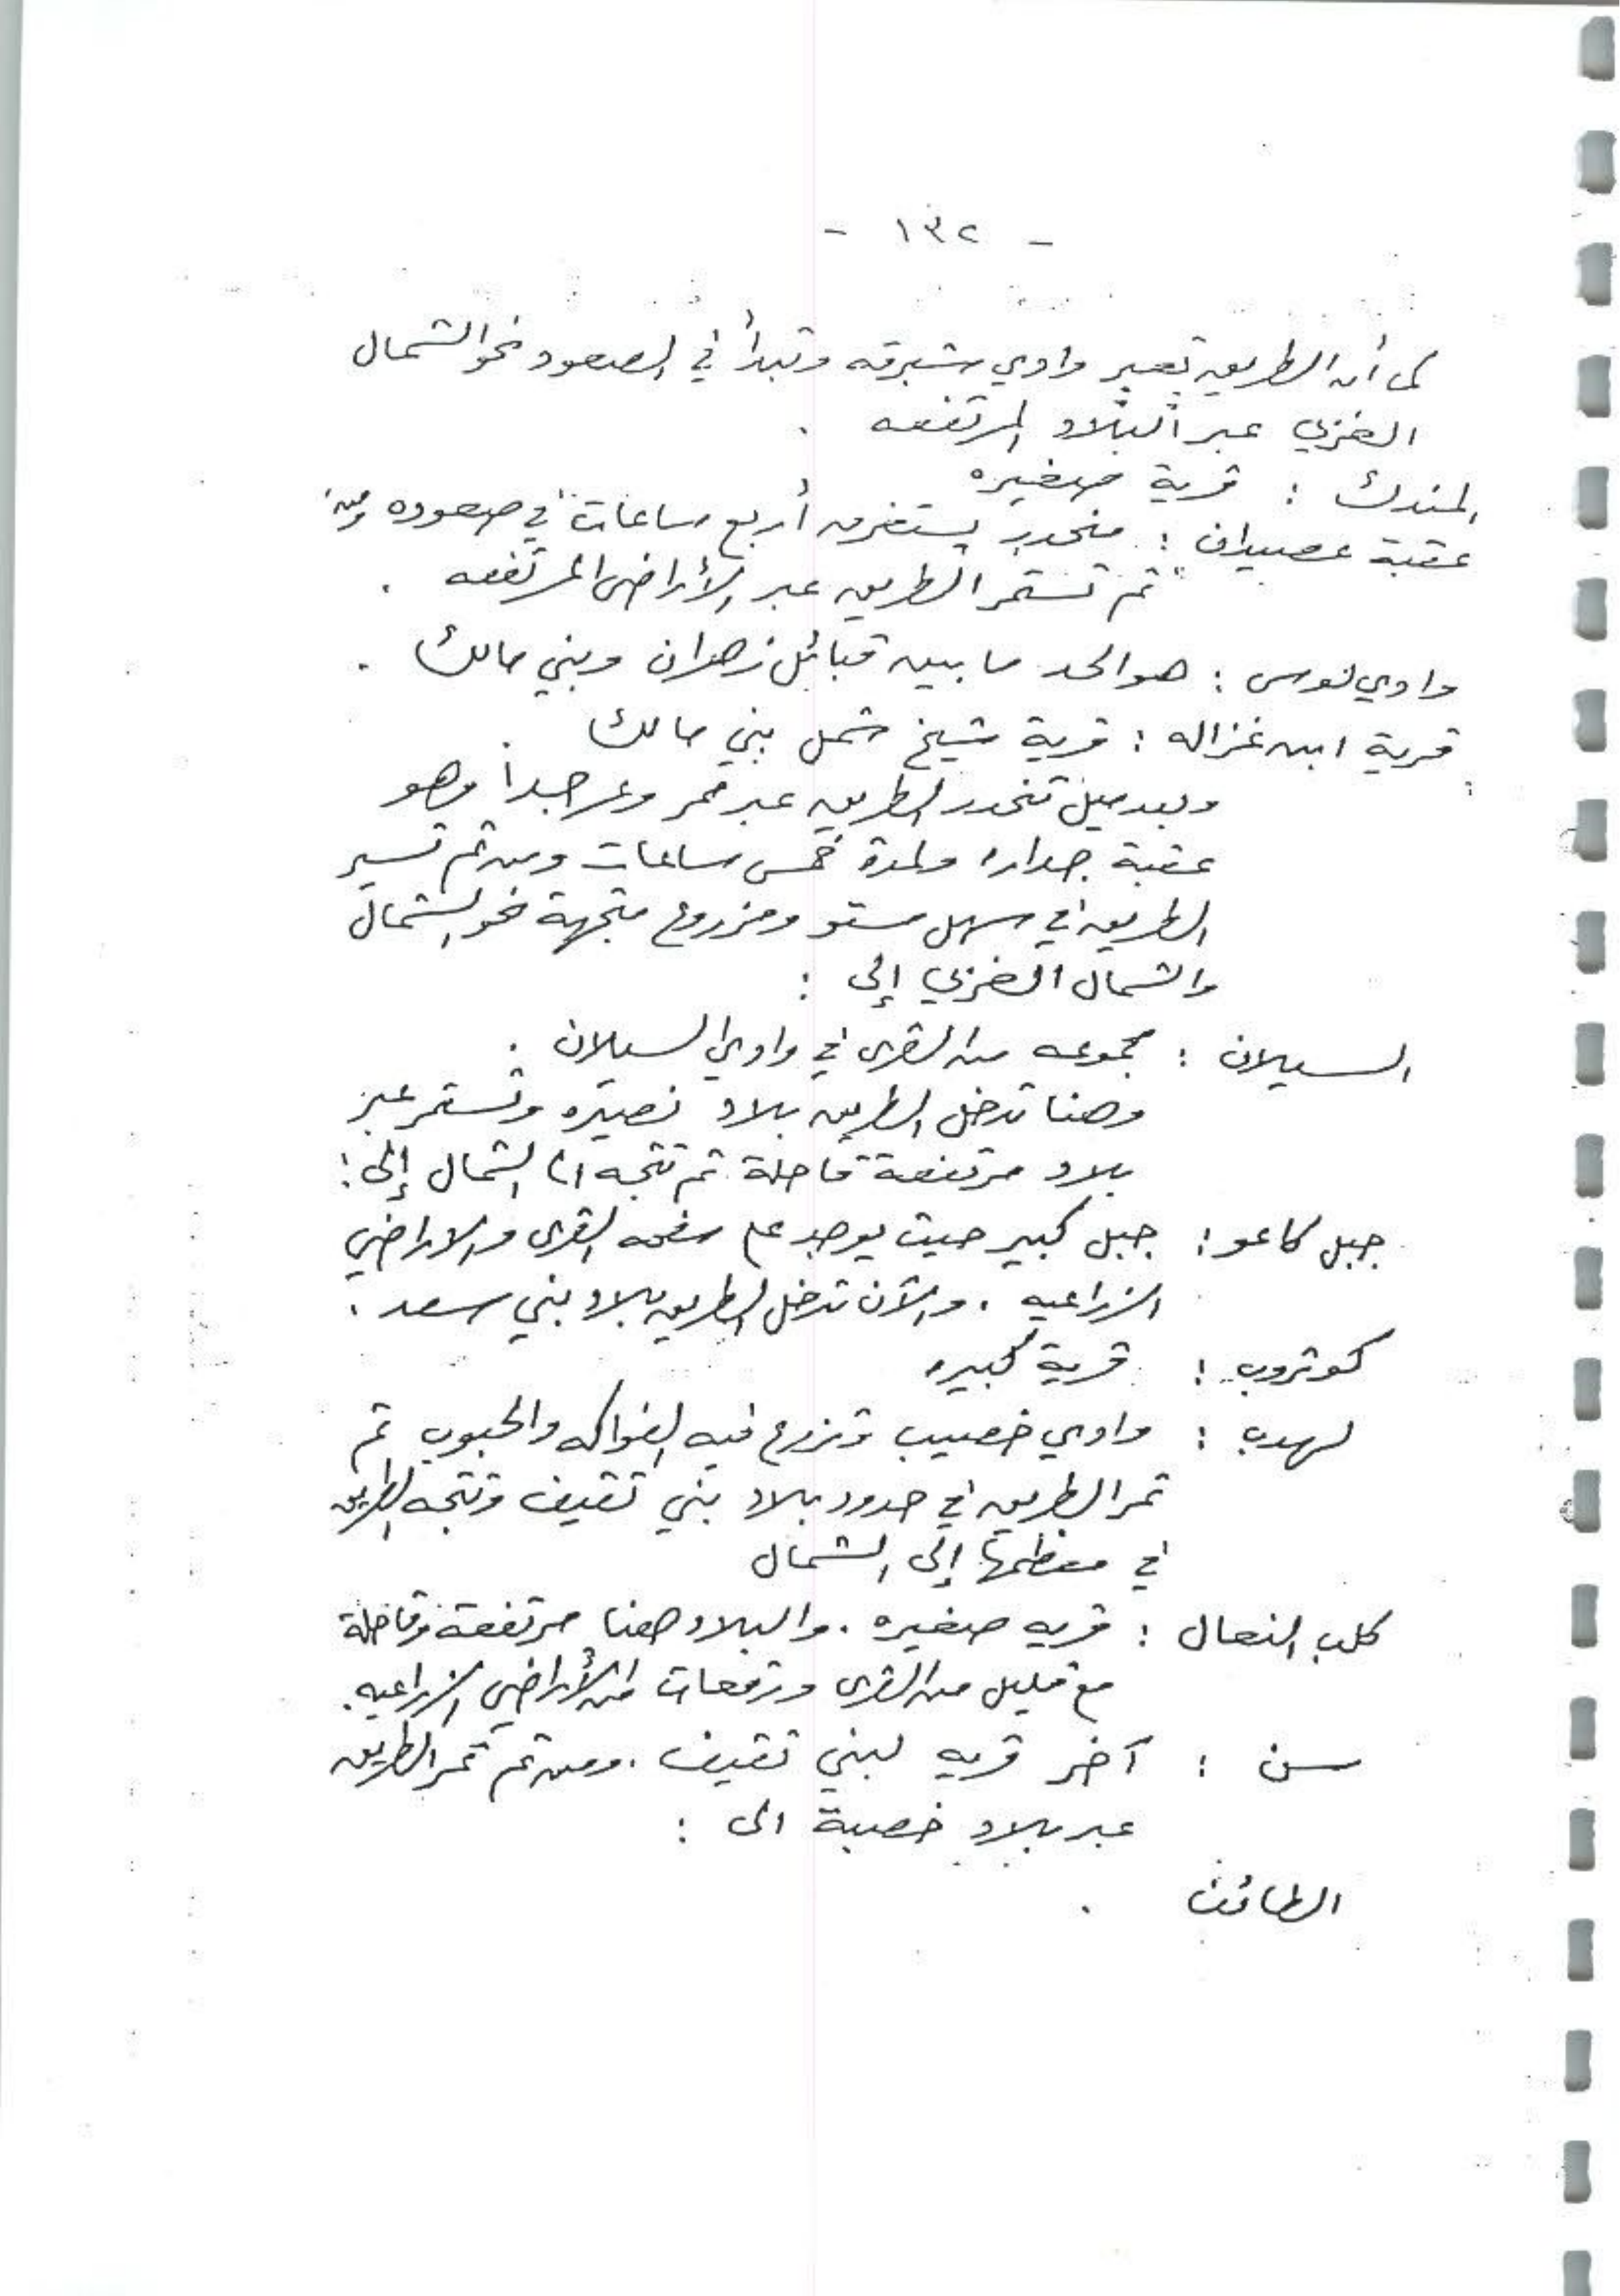 - ١٣٢ -
كما أن الطريق تعبر وادي شبرقه وتبدأ في الصعود نحو الشمال
الغربي عبر البلاد المرتفعه .
المندك : قرية صغيره
عقبة عصيدان : منحدر يستغرق أربع ساعات في صعوده ومن
ثم تستمر الطريق عبر الأراضى المرتفعه .
وادي لوس : هو الحد ما بين قبائل زهران وبني مالك .
قرية ابن غزاله : قرية شيخ شمل بني مالك .
وبعد ميل تنحدر الطريق عبر ممر وعر جداً وهو
عقبة جداره ولمدة خمس ساعات ومن ثم تسير
الطريق في سهل مستو ومزروع متجهة نحو الشمال
والشمال الغربي إلى :
السيلان : مجموعه من القرى في وادي السيلان .
وهنا تدخل الطريق بلاد نصيره وتستمر عبر
بلاد مرتفعة قاحلة ثم تتجه الى الشمال إلى :
جبل كاعو : جبل كبير حيث يوجد على سفحه القرى والاراضي
الزراعيه . والآن تدخل الطريق بلاد بني سعد .
كوتروب : قرية كبيره
لهدب : وادي خصيب وتزرع فيه الفواكه والحبوب ثم
تمر الطريق في حدود بلاد بني ثقيف وتتجه الطريق
في معظمها إلى الشمال
كلب النعال : قريه صغيره . والبلاد هنا مرتفعة وقاحلة
مع قليل من القرى ورقعات من الأراضي الزراعيه .
سن : آخر قريه لبني ثقيف . ومن ثم تمر الطريق
عبر بلاد خصبة الى :
الطائف .